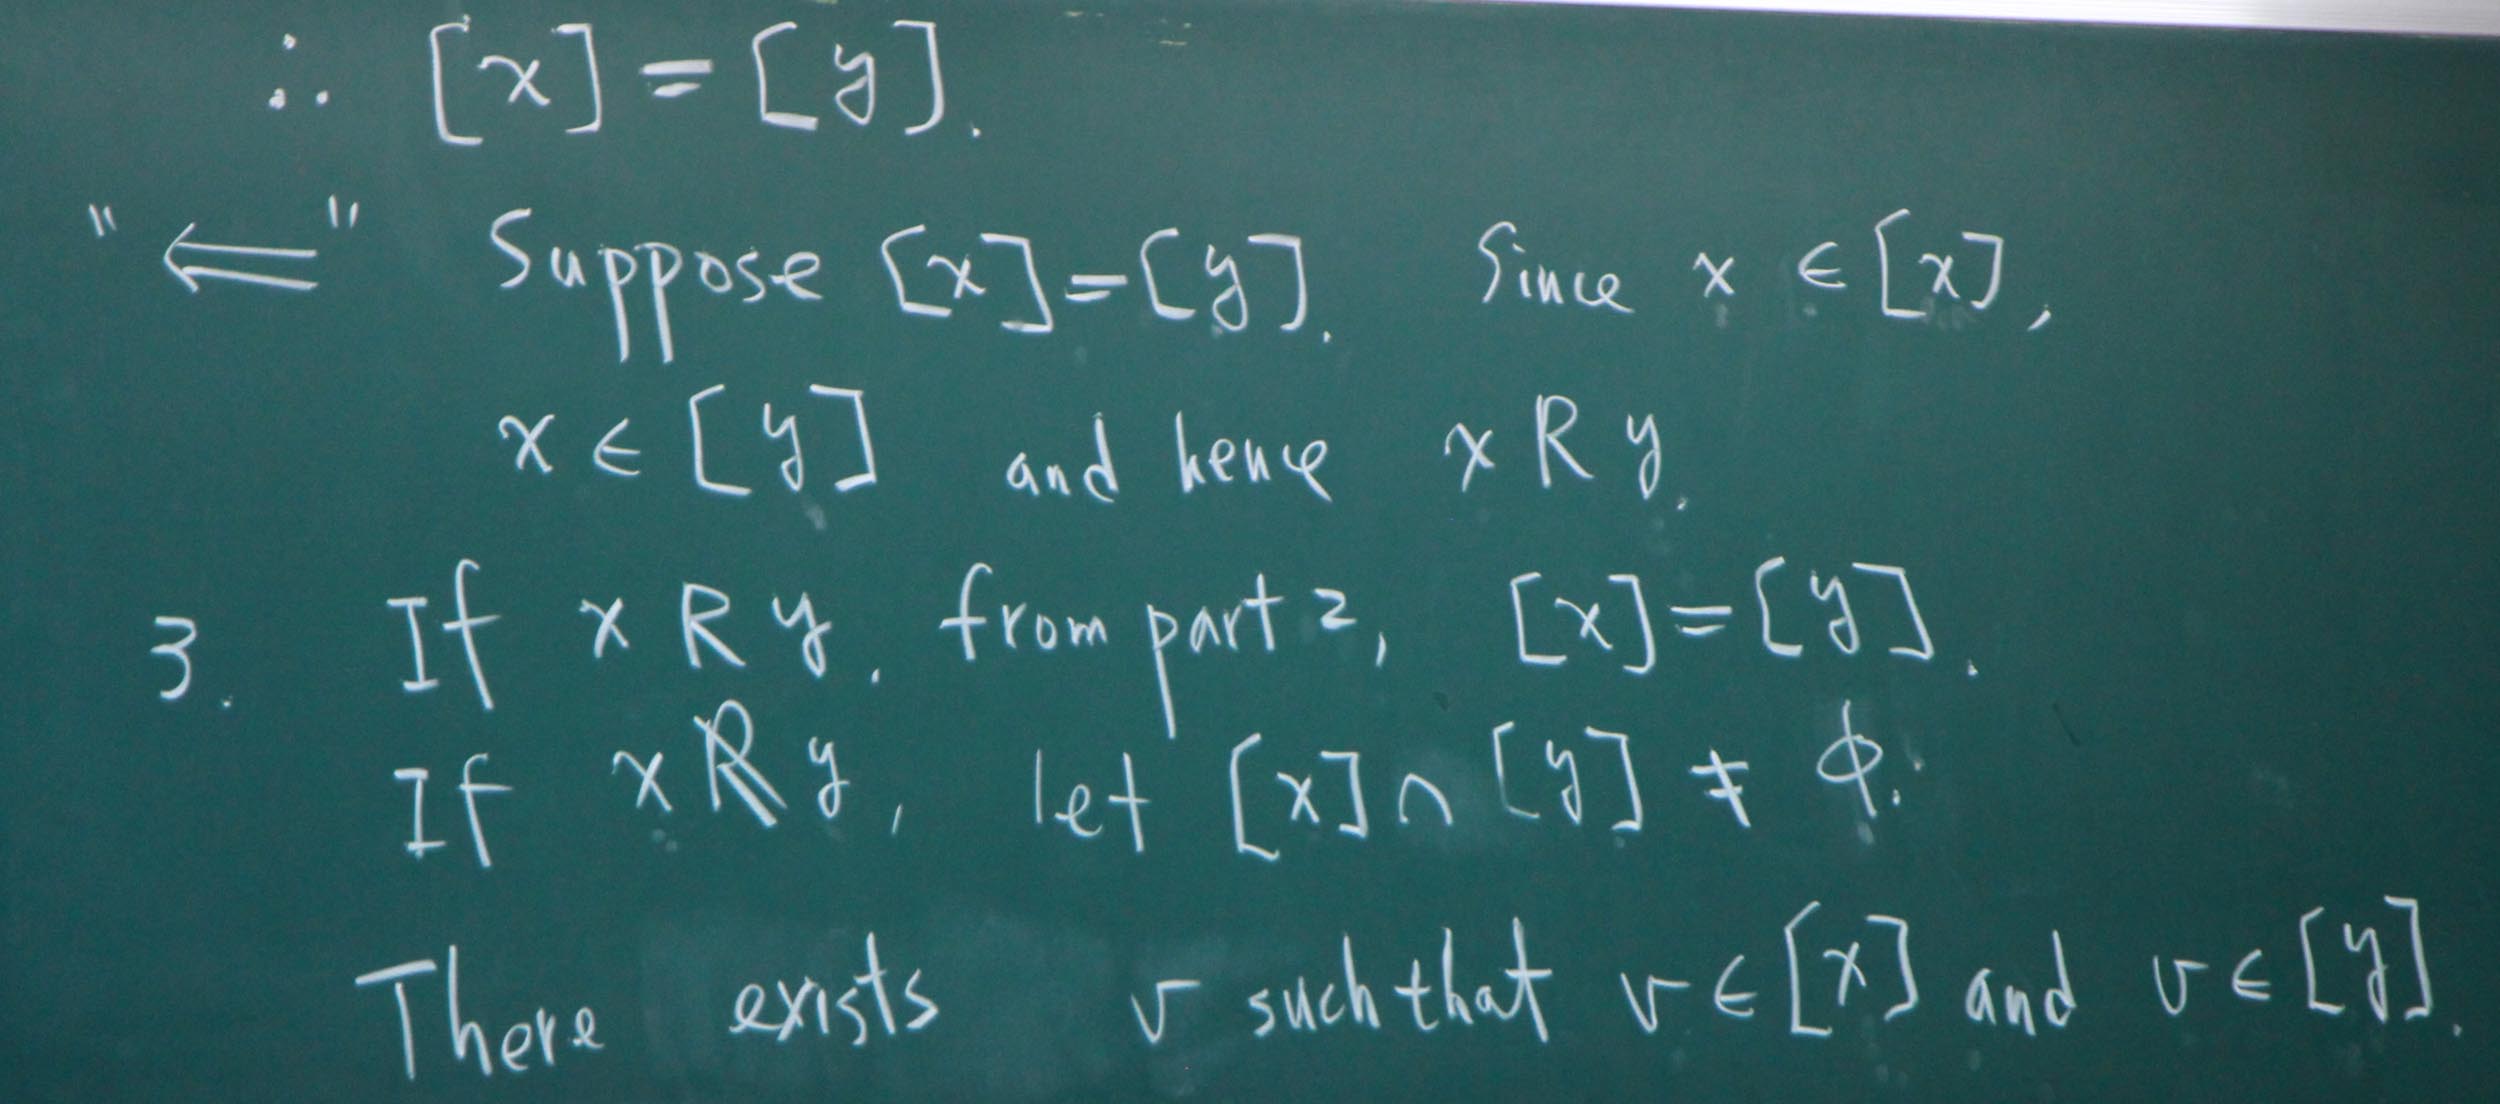 ∴ [x] = [y].
"⇐" Suppose [x] = [y]. Since x ∈ [x],
x ∈ [y] and hence x R y.
3. If x R y, from part 2, [x] = [y].
If x R̸ y, let [x] ∩ [y] ≠ ϕ.
There exists v such that v ∈ [x] and v ∈ [y].